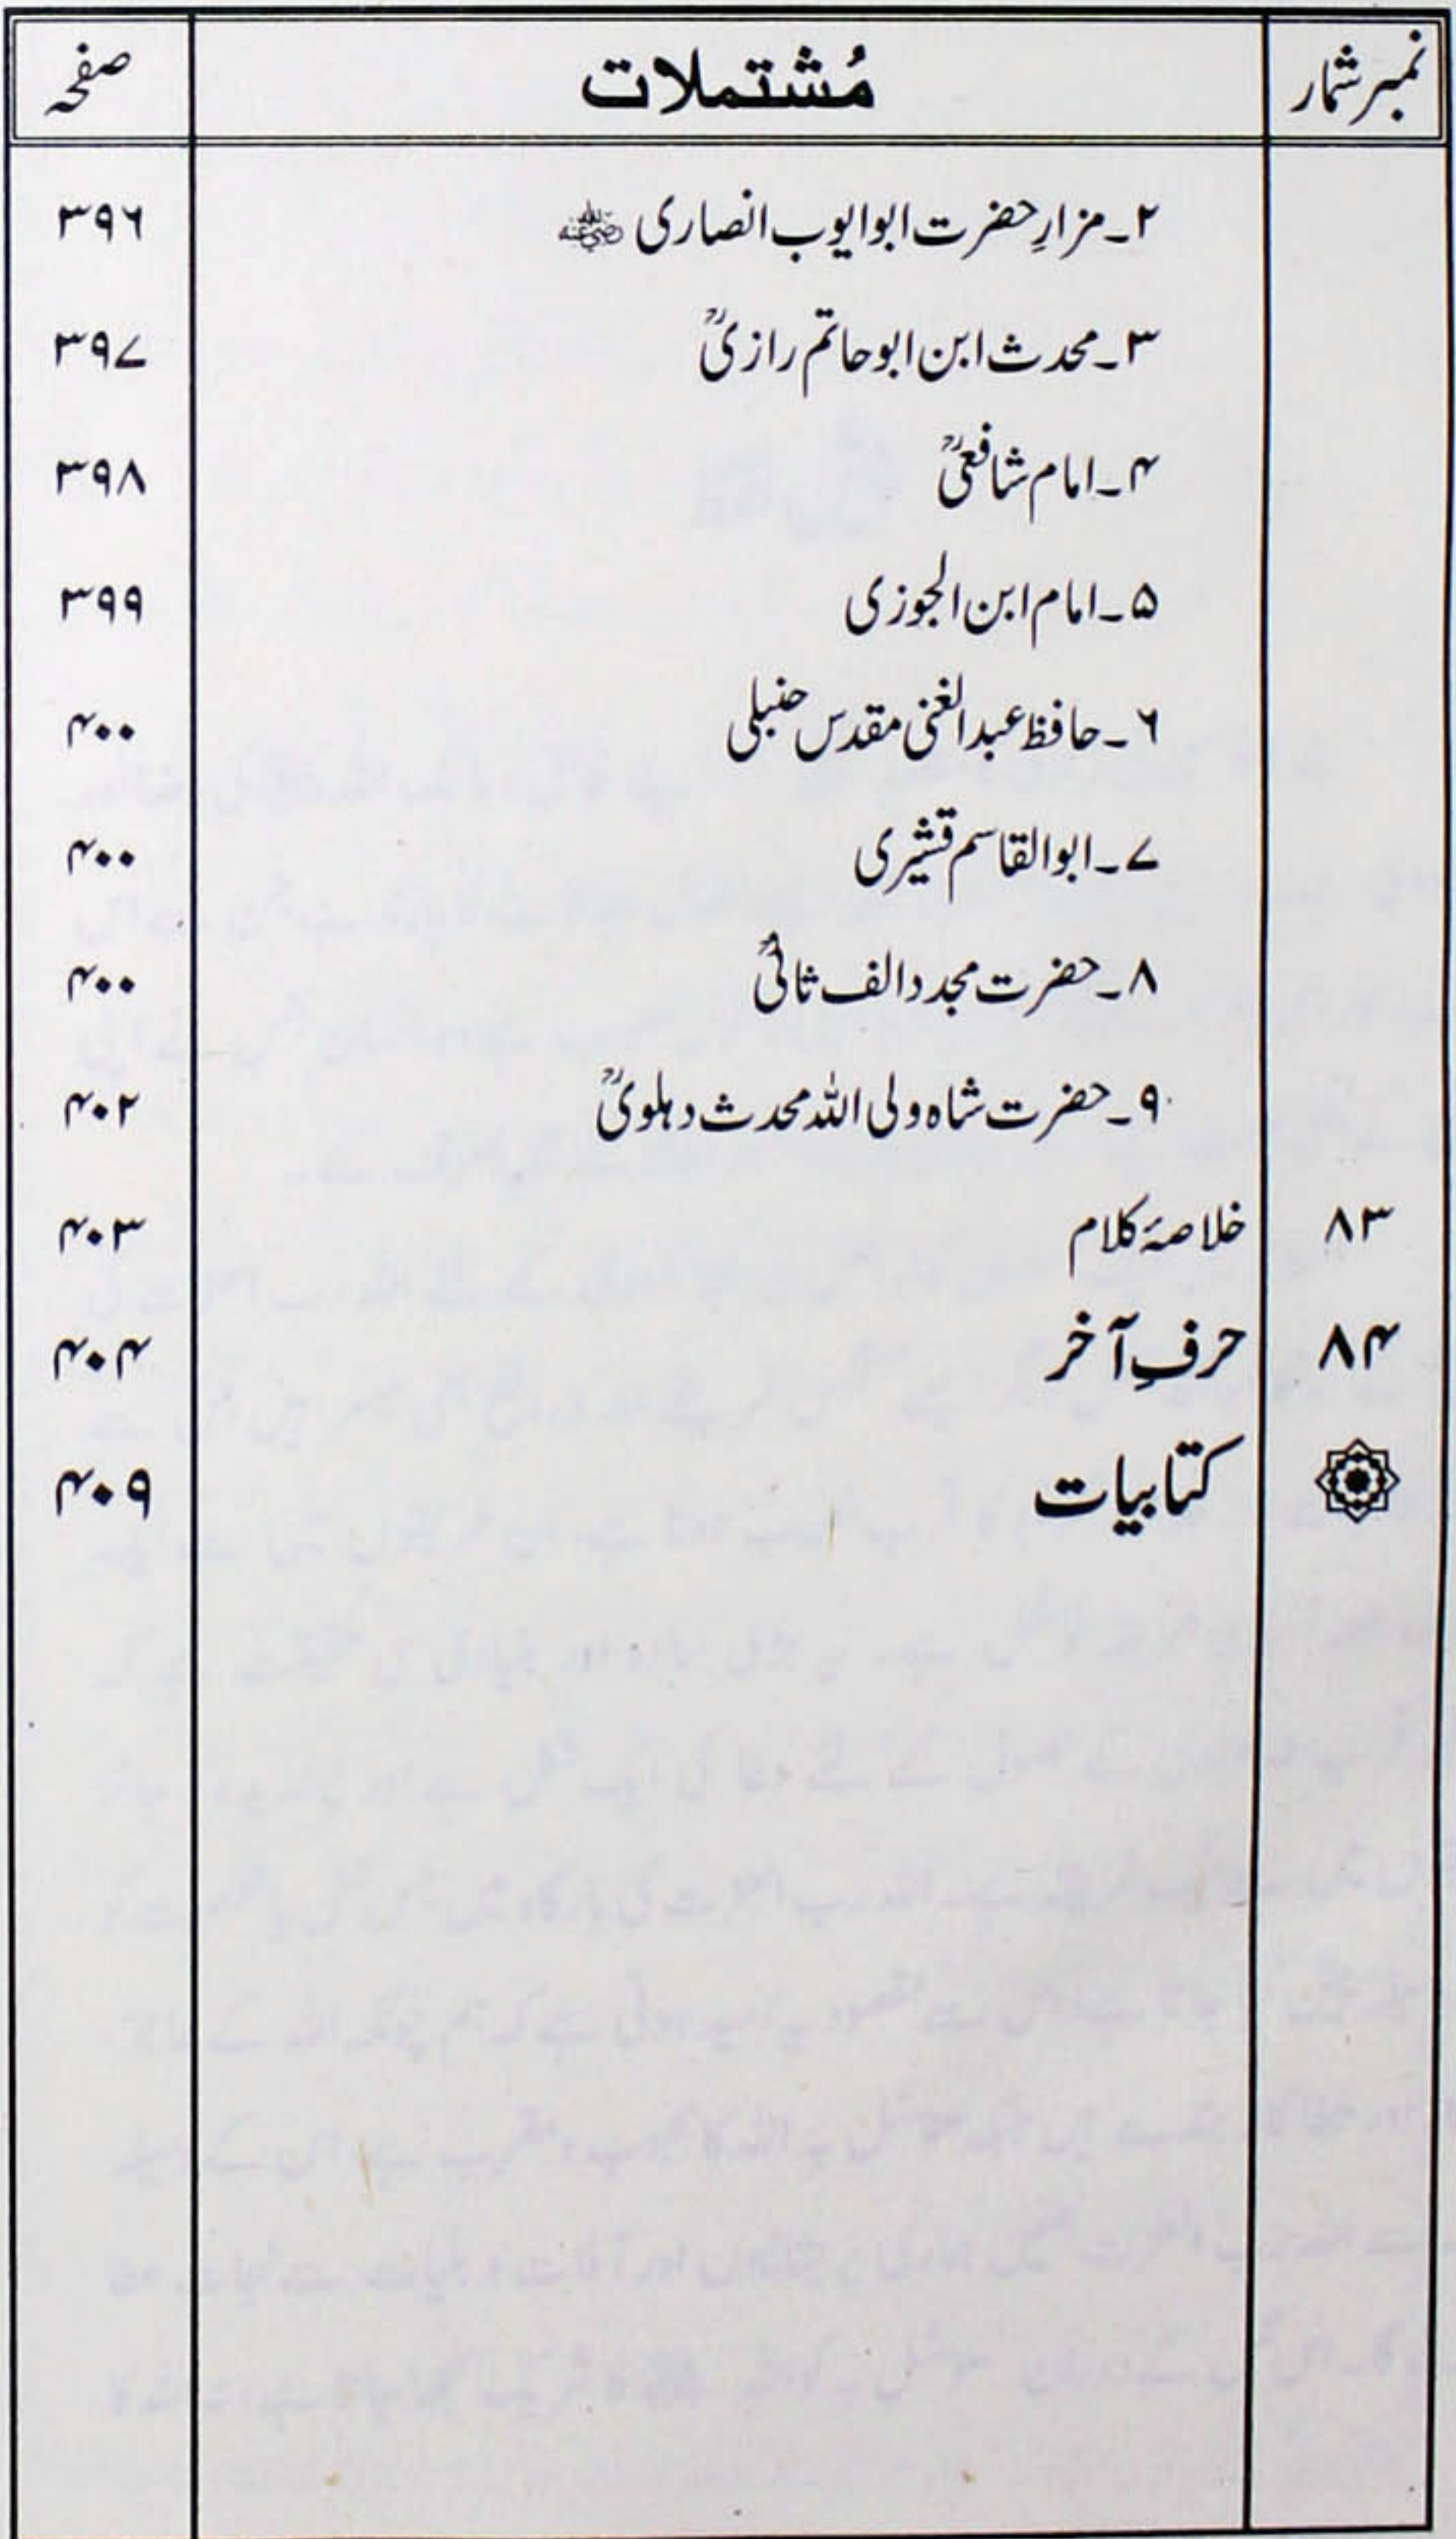 نمبر شمار مُشتملات صفحہ
۲۔ مزارِ حضرت ابو ایوب انصاری رضی اللہ عنہ ۳۹۶
۳۔ محدث ابن ابو حاتم رازیؒ ۳۹۷
۴۔ امام شافعیؒ ۳۹۸
۵۔ امام ابن الجوزی ۳۹۹
۶۔ حافظ عبدالغنی مقدس حنبلی ۴۰۰
۷۔ ابوالقاسم قشیری ۴۰۰
۸۔ حضرت مجدد الف ثانیؒ ۴۰۰
۹۔ حضرت شاہ ولی اللہ محدث دہلویؒ ۴۰۲
۸۳ خلاصۂ کلام ۴۰۳
۸۴ حرفِ آخر ۴۰۴
کتابیات ۴۰۹